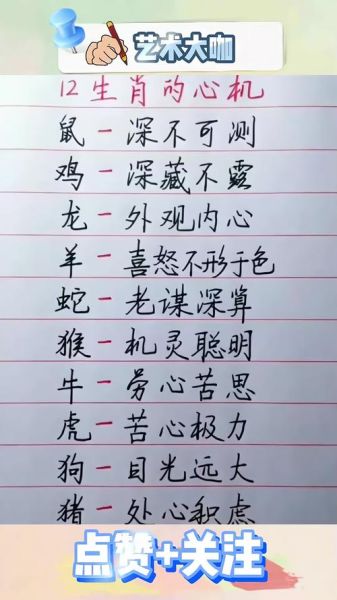 艺术大咖
12生肖的心机
鼠-深不可测
鸡-深藏不露
龙-外观内心
羊-喜怒不形于色
蛇-老谋深算
猴-机灵聪明
牛-劳心苦思
虎-苦心极力
狗-目光远大
猪-处心积虑
点赞+关注